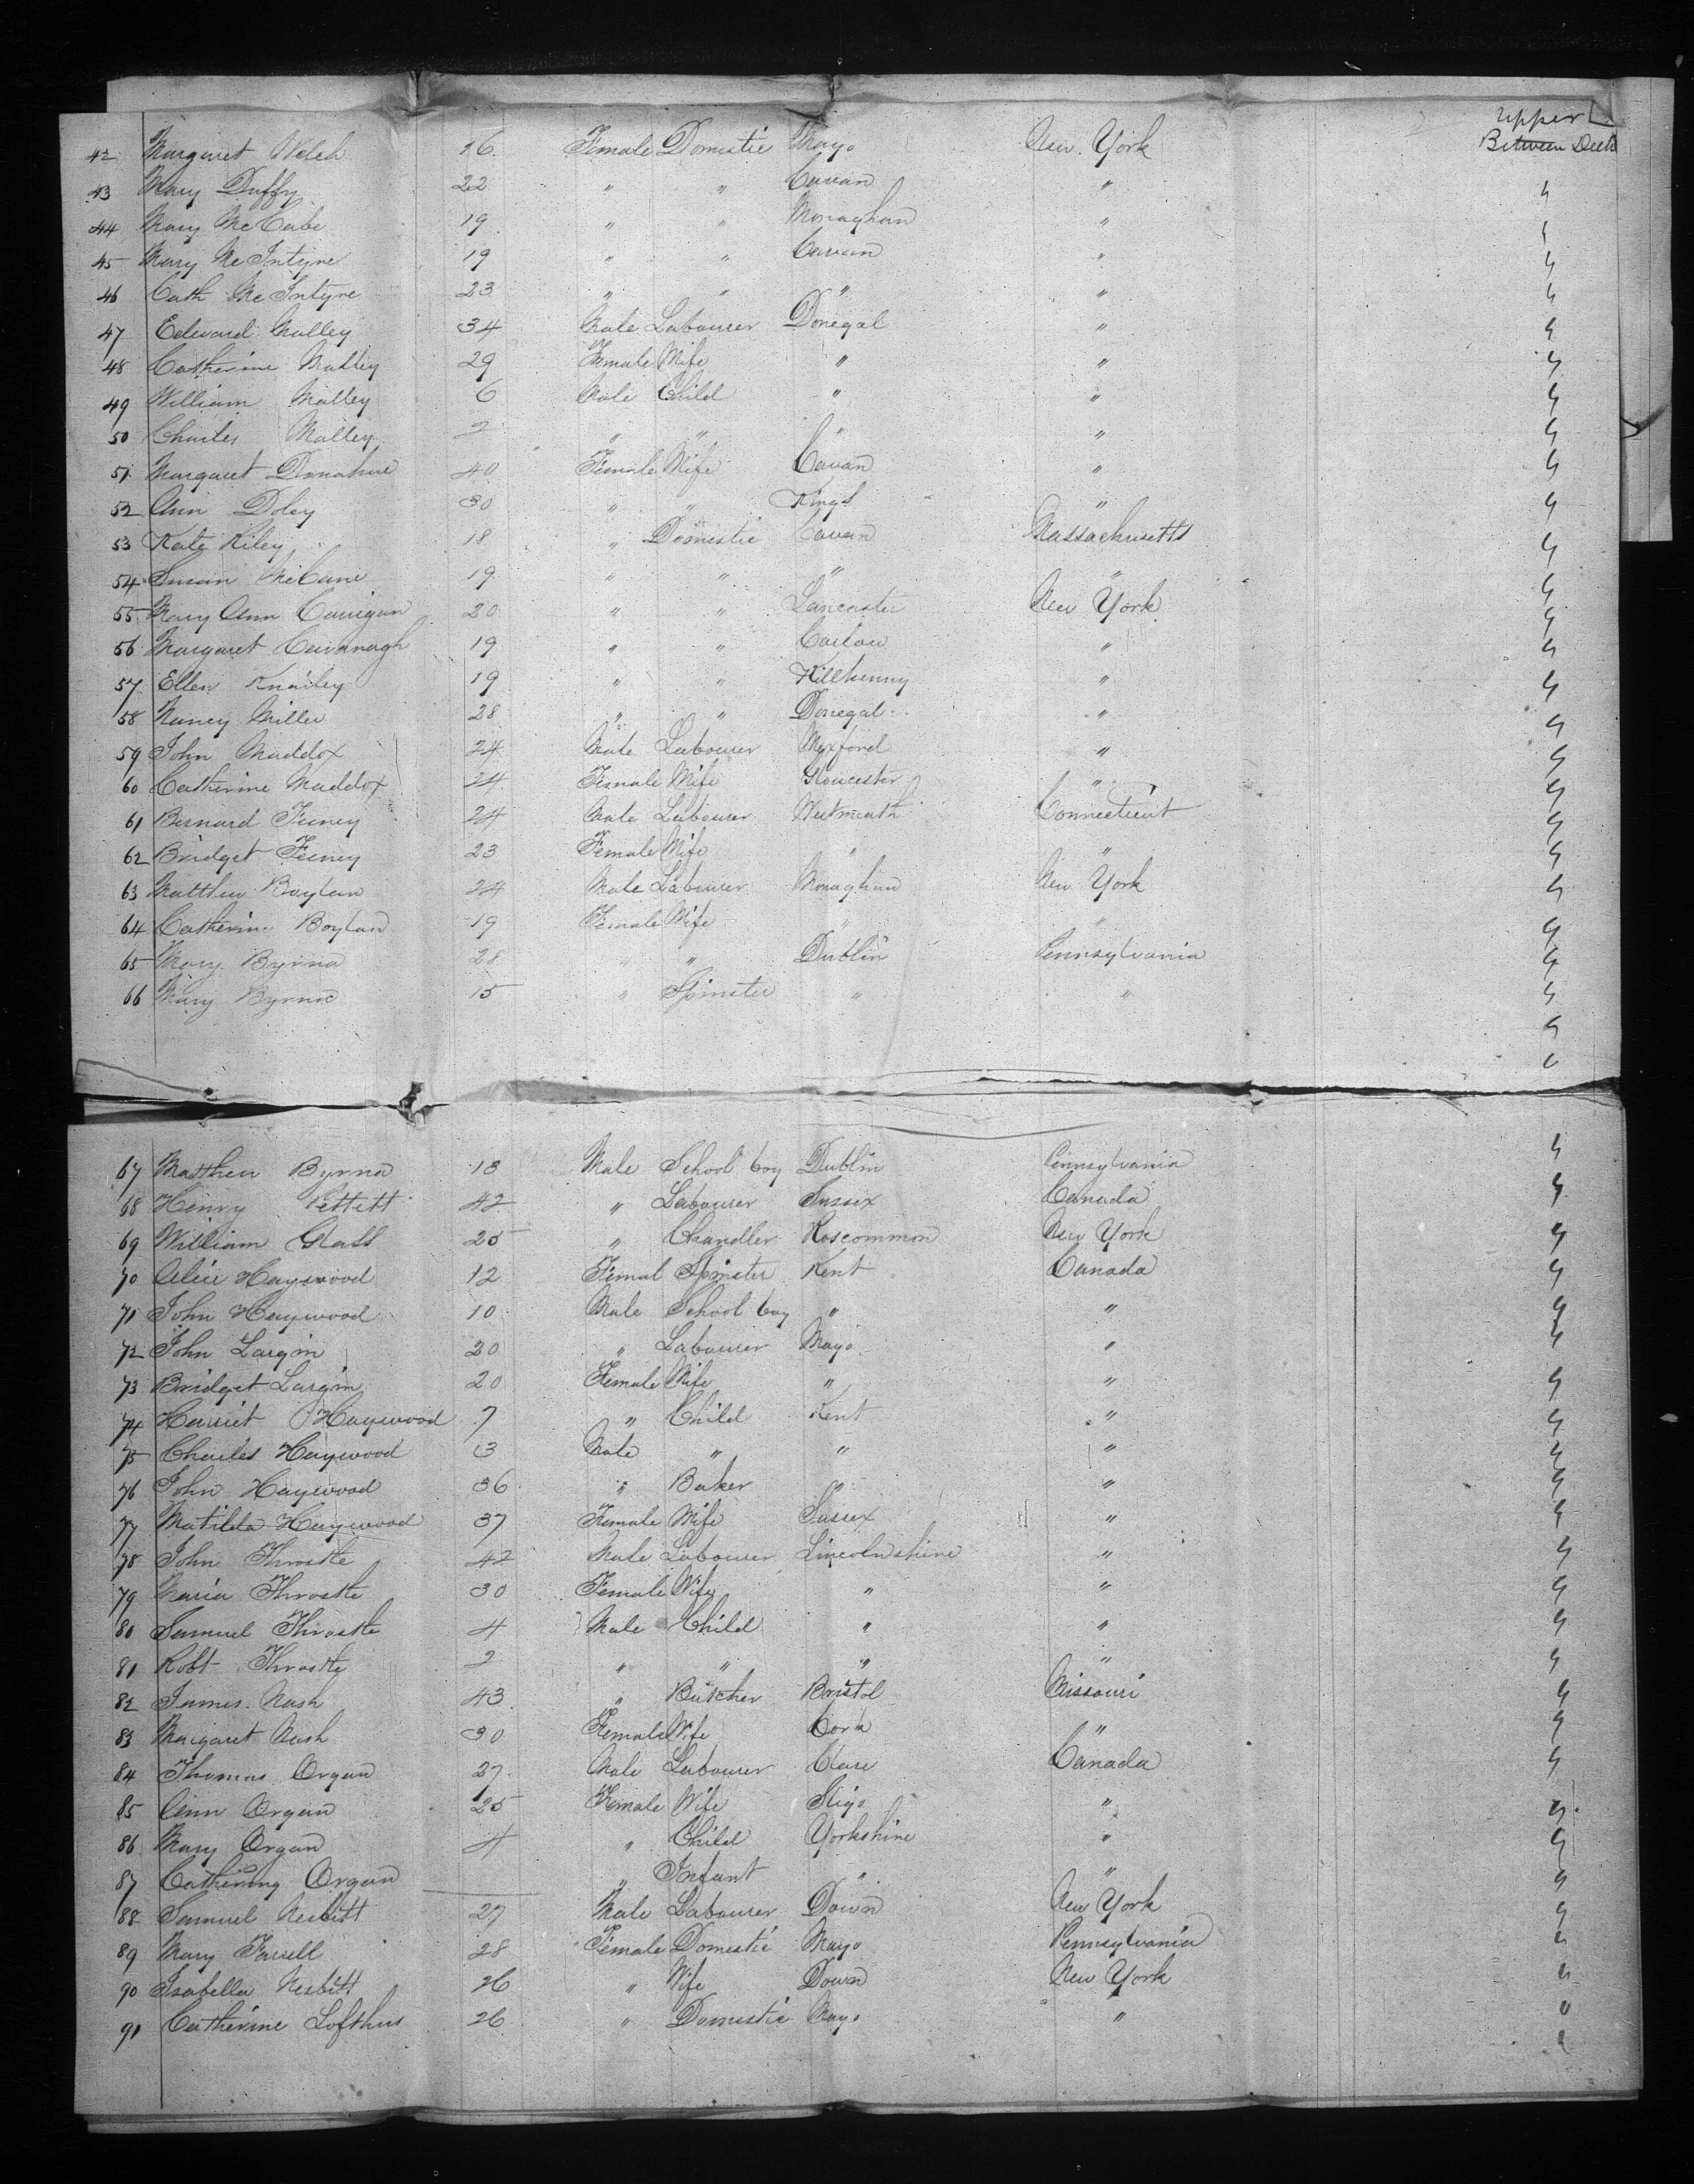 upper
42 Margaret Welch 16 Female Domestic Mayo New York Between Decks
43 Mary Duffy 22 " " Cavan " "
44 Mary McCabe 19 " " Monaghan " "
45 Mary McIntyre 19 " " Cavan " "
46 Cath McIntyre 23 " " " " "
47 Edward Malley 34 Male Labourer Donegal " "
48 Catherine Malley 29 Female Wife " " "
49 William Malley 6 Male Child " " "
50 Charles Malley 2 " " " " "
51 Margaret Donahue 40 Female Wife Cavan " "
52 Ann Doley 30 " " Kings " "
53 Kate Riley 18 " Domestic Cavan Massachusetts "
54 Susan McCune 19 " " " " "
55 Mary Ann Carrigan 20 " " Lancaster New York "
56 Margaret Cavanagh 19 " " Carlow " "
57 Ellen Knailey 19 " " Killkenny " "
58 Nancy Miller 28 " " Donegal " "
59 John Maddox 24 Male Labourer Wexford " "
60 Catherine Maddox 24 Female Wife Gloucester " "
61 Bernard Feeney 24 Male Labourer Westmeath Connecticut "
62 Bridget Feeney 23 Female Wife " " "
63 Matthew Boylan 24 Male Labourer Monaghan New York "
64 Catherine Boylan 19 Female Wife " " "
65 Mary Byrne 28 " " Dublin Pennsylvania "
66 Mary Byrne 15 " Spinster " " "
67 Matthew Byrne 13 Male School boy Dublin Pennsylvania "
68 Henry Pettett 42 " Labourer Sussex Canada "
69 William Glass 25 " Chandler Roscommon New York "
70 Alice Haywood 12 Femal Spinster Kent Canada "
71 John Haywood 10 Male School boy " " "
72 John Largin 20 " Labourer Mayo " "
73 Bridget Largin 20 Female Wife " " "
74 Harriet Haywood 7 " Child Kent " "
75 Charles Haywood 3 Male " " " "
76 John Haywood 36 " Baker " " "
77 Matilda Haywood 37 Female Wife Sussex " "
78 John Throstle 42 Male Labourer Lincolnshire " "
79 Maria Throstle 30 Female Wife " " "
80 Samuel Throstle 4 Male Child " " "
81 Robt Throstle 2 " " " " "
82 James Nash 43 " Butcher Bristol Missouri "
83 Margaret Nash 30 Female Wife Cork " "
84 Thomas Organ 27 Male Labourer Clare Canada "
85 Ann Organ 25 Female Wife Sligo " "
86 Mary Organ 4 " Child Yorkshire " "
87 Catherine Organ " Infant " " "
88 Samuel Nesbitt 27 Male Labourer Down New York "
89 Mary Farrell 28 Female Domestic Mayo Pennsylvania "
90 Isabella Nesbitt 26 " Wife Down New York "
91 Catherine Lofthus 26 " Domestic Mayo " "